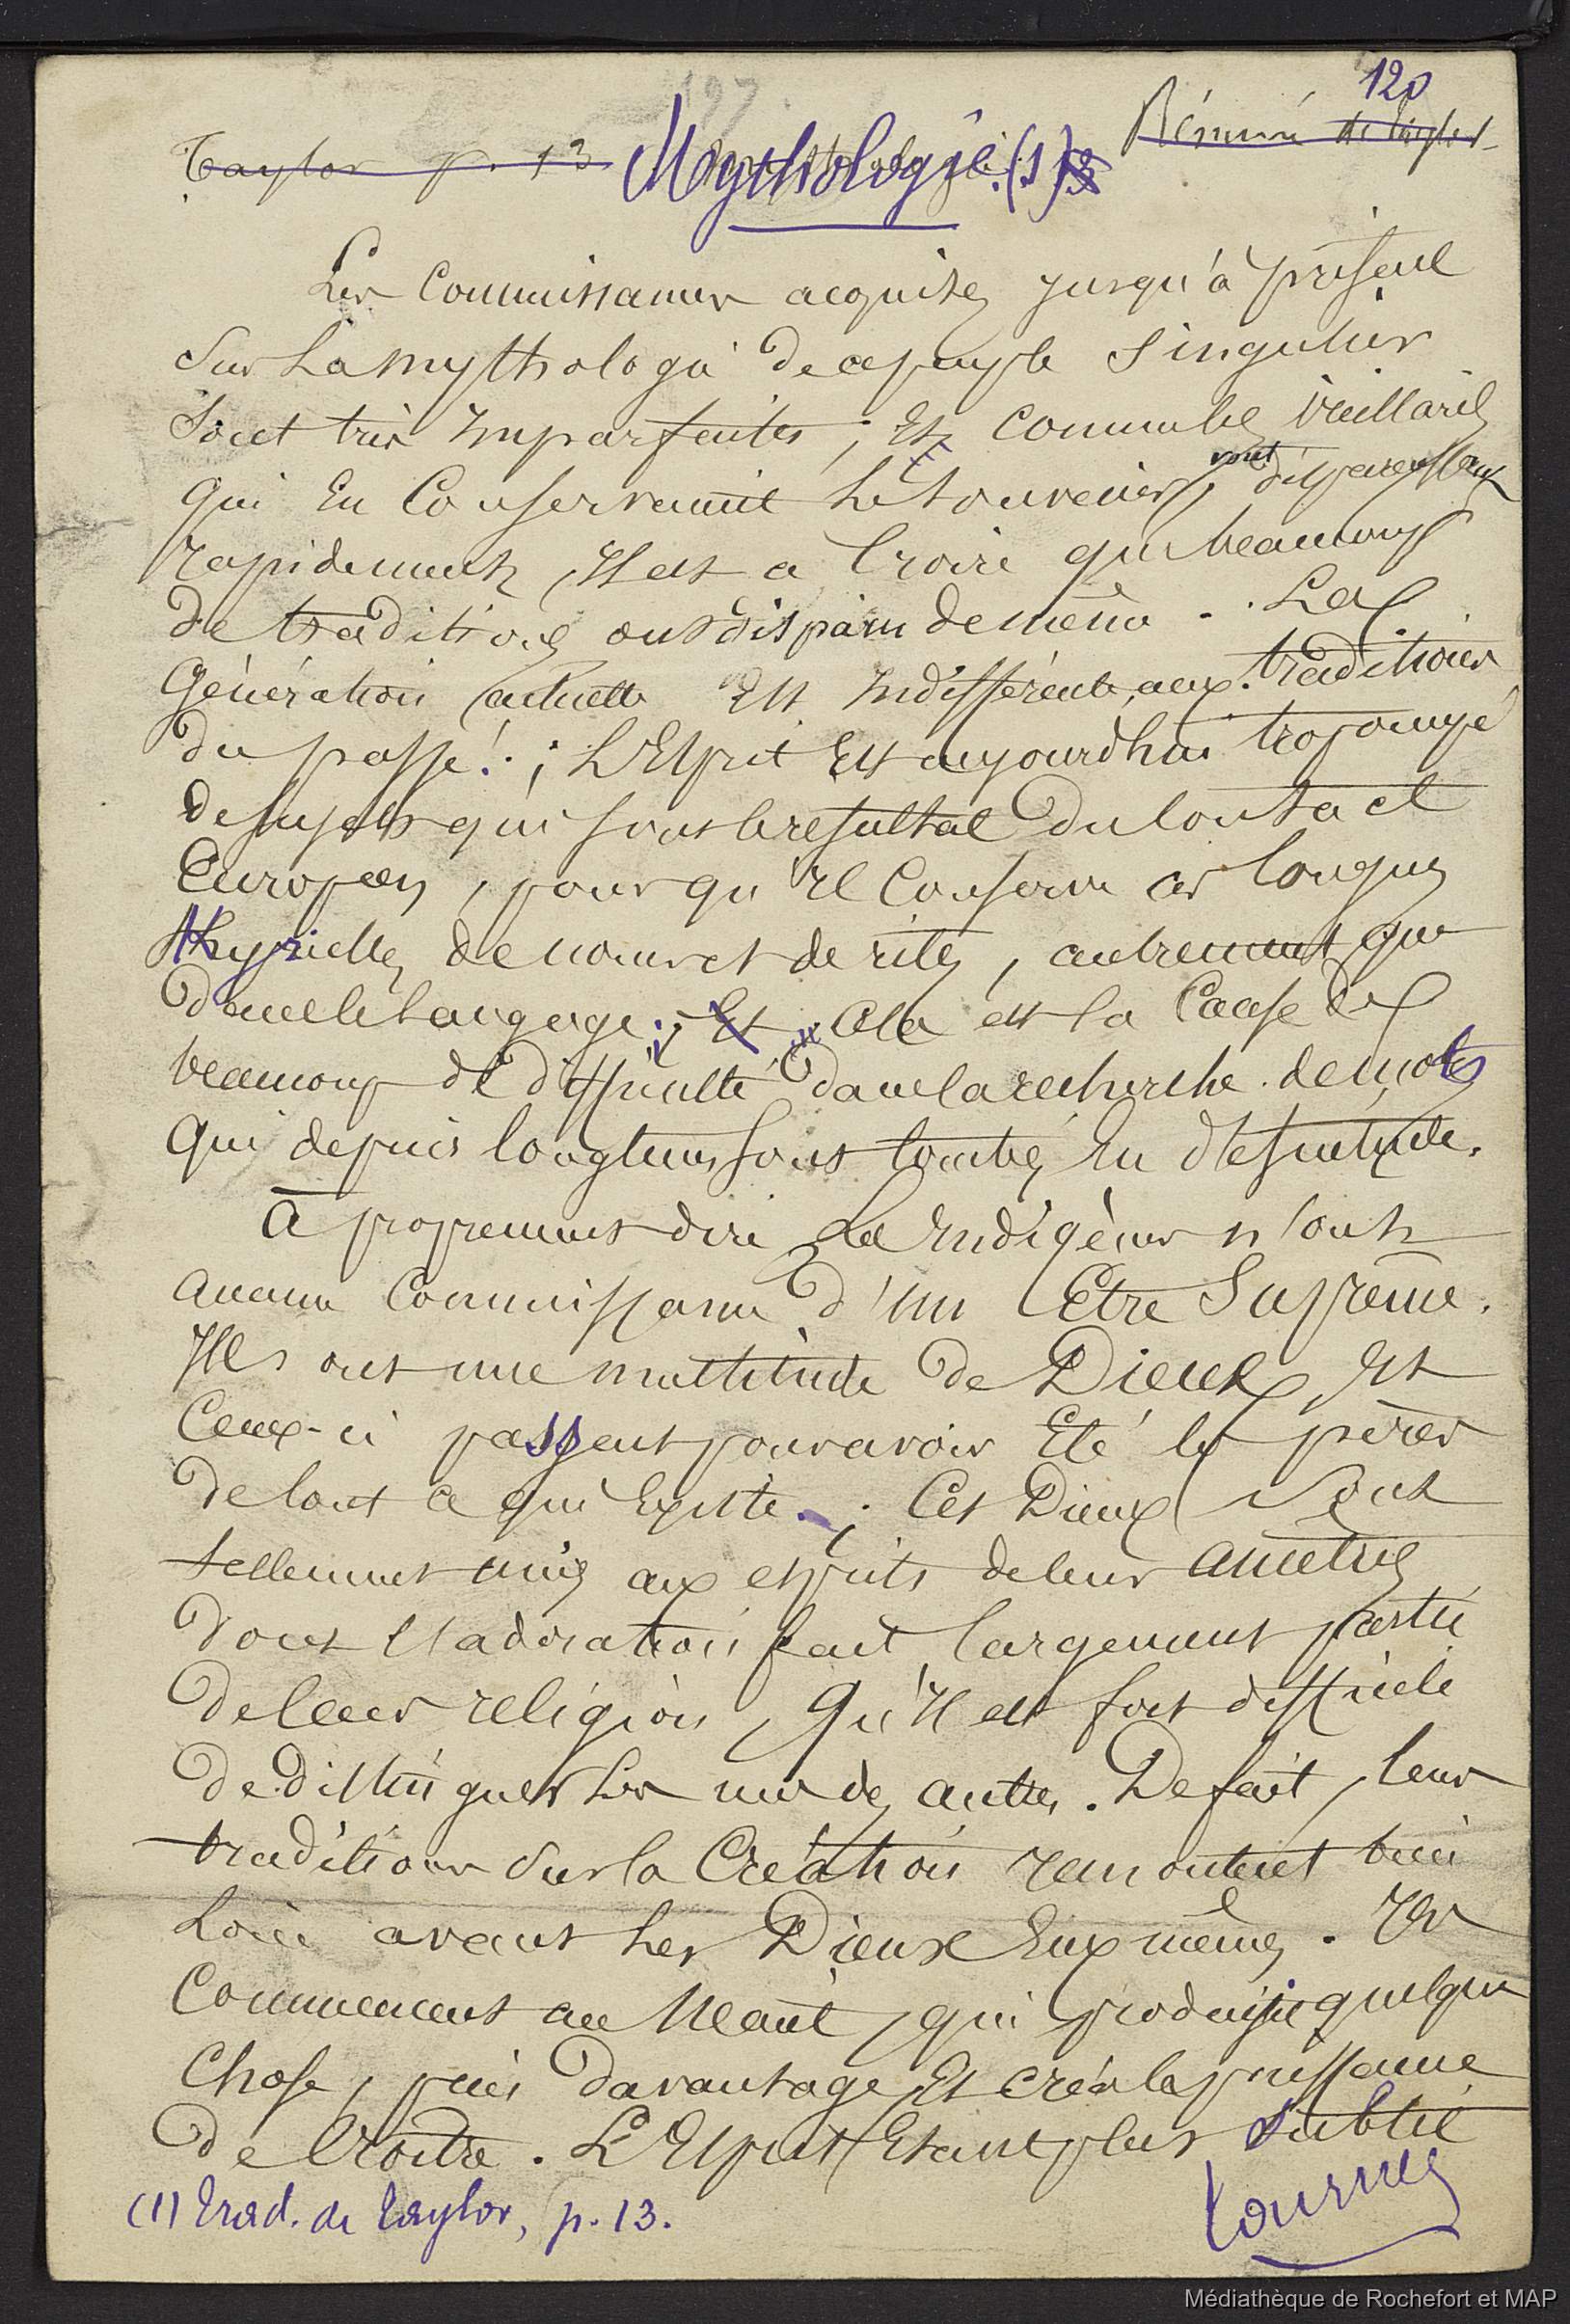 120
Taylor p. 13 Mythologie (1) Résumé de Taylor
Les Connaissances acquises jusqu'à présent
Sur La mythologie de ce peuple Singulier
Sont très Imparfaites ; Et Comme les Vieillards
vont
Qui En Conservaient le Souvenir, disparaissent
rapidement, Il est a Croire que beaucoup
De traditions ont disparu de même . La
Génération actuelle Est Indifférente aux traditions
du passé ; L'Esprit Est aujourd'hui trop occupé
de sujets qui sont le résultat du Contact
Européen, pour qu'il Conserve ces longues
Kyrielles de noms et de rites, autrement que
Dans le langage ; Et Cela est la Cause de
beaucoup de difficulté dans la recherche de mots
Qui depuis longtems sont tombés En désuétude.
A proprement dire Les Indigènes n'ont
aucune Connaissance d'un Etre Suprême.
Ils ont une multitude de Dieux, Et
Ceux-ci passent pour avoir Eté les pères
de tout ce qui Existe. Ces Dieux sont
tellement unis aux esprits de leurs ancêtres
dont l'adoration fait largement partie
de leur religion, Qu'Il est fort difficile
de distinguer les uns des autres. De fait, leurs
traditions Sur la Création remontent bien
Loin avant les Dieux Eux mêmes. Ils
Commencent au Néant, qui produisit quelque
Chose, puis Davantage Et créa la puissance
de Croître. L'Esprit Etant plus Subtil
(1) Trad. de Taylor, p. 13.
tournez
Médiathèque de Rochefort et MAP